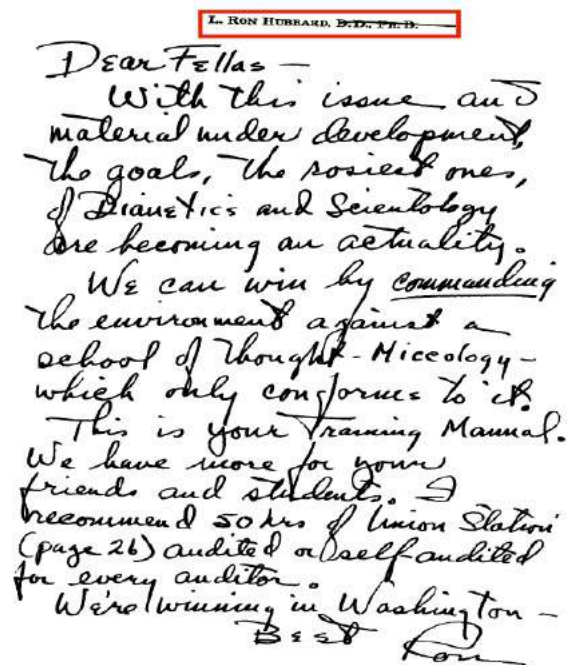 L. RON HUBBARD, D.D., PH.D.
Dear Fellas –
With this issue and
material under development,
the goals, the rosiest ones,
of Dianetics and Scientology
are becoming an actuality.
We can win by commanding
the environment against a
school of thought – Miceology –
which only conforms to it.
This is your Training Manual.
We have more for your
friends and students. I
recommend 50 hrs of Union Station
(page 26) audited or self audited
for every auditor.
We're winning in Washington –
Best Ron